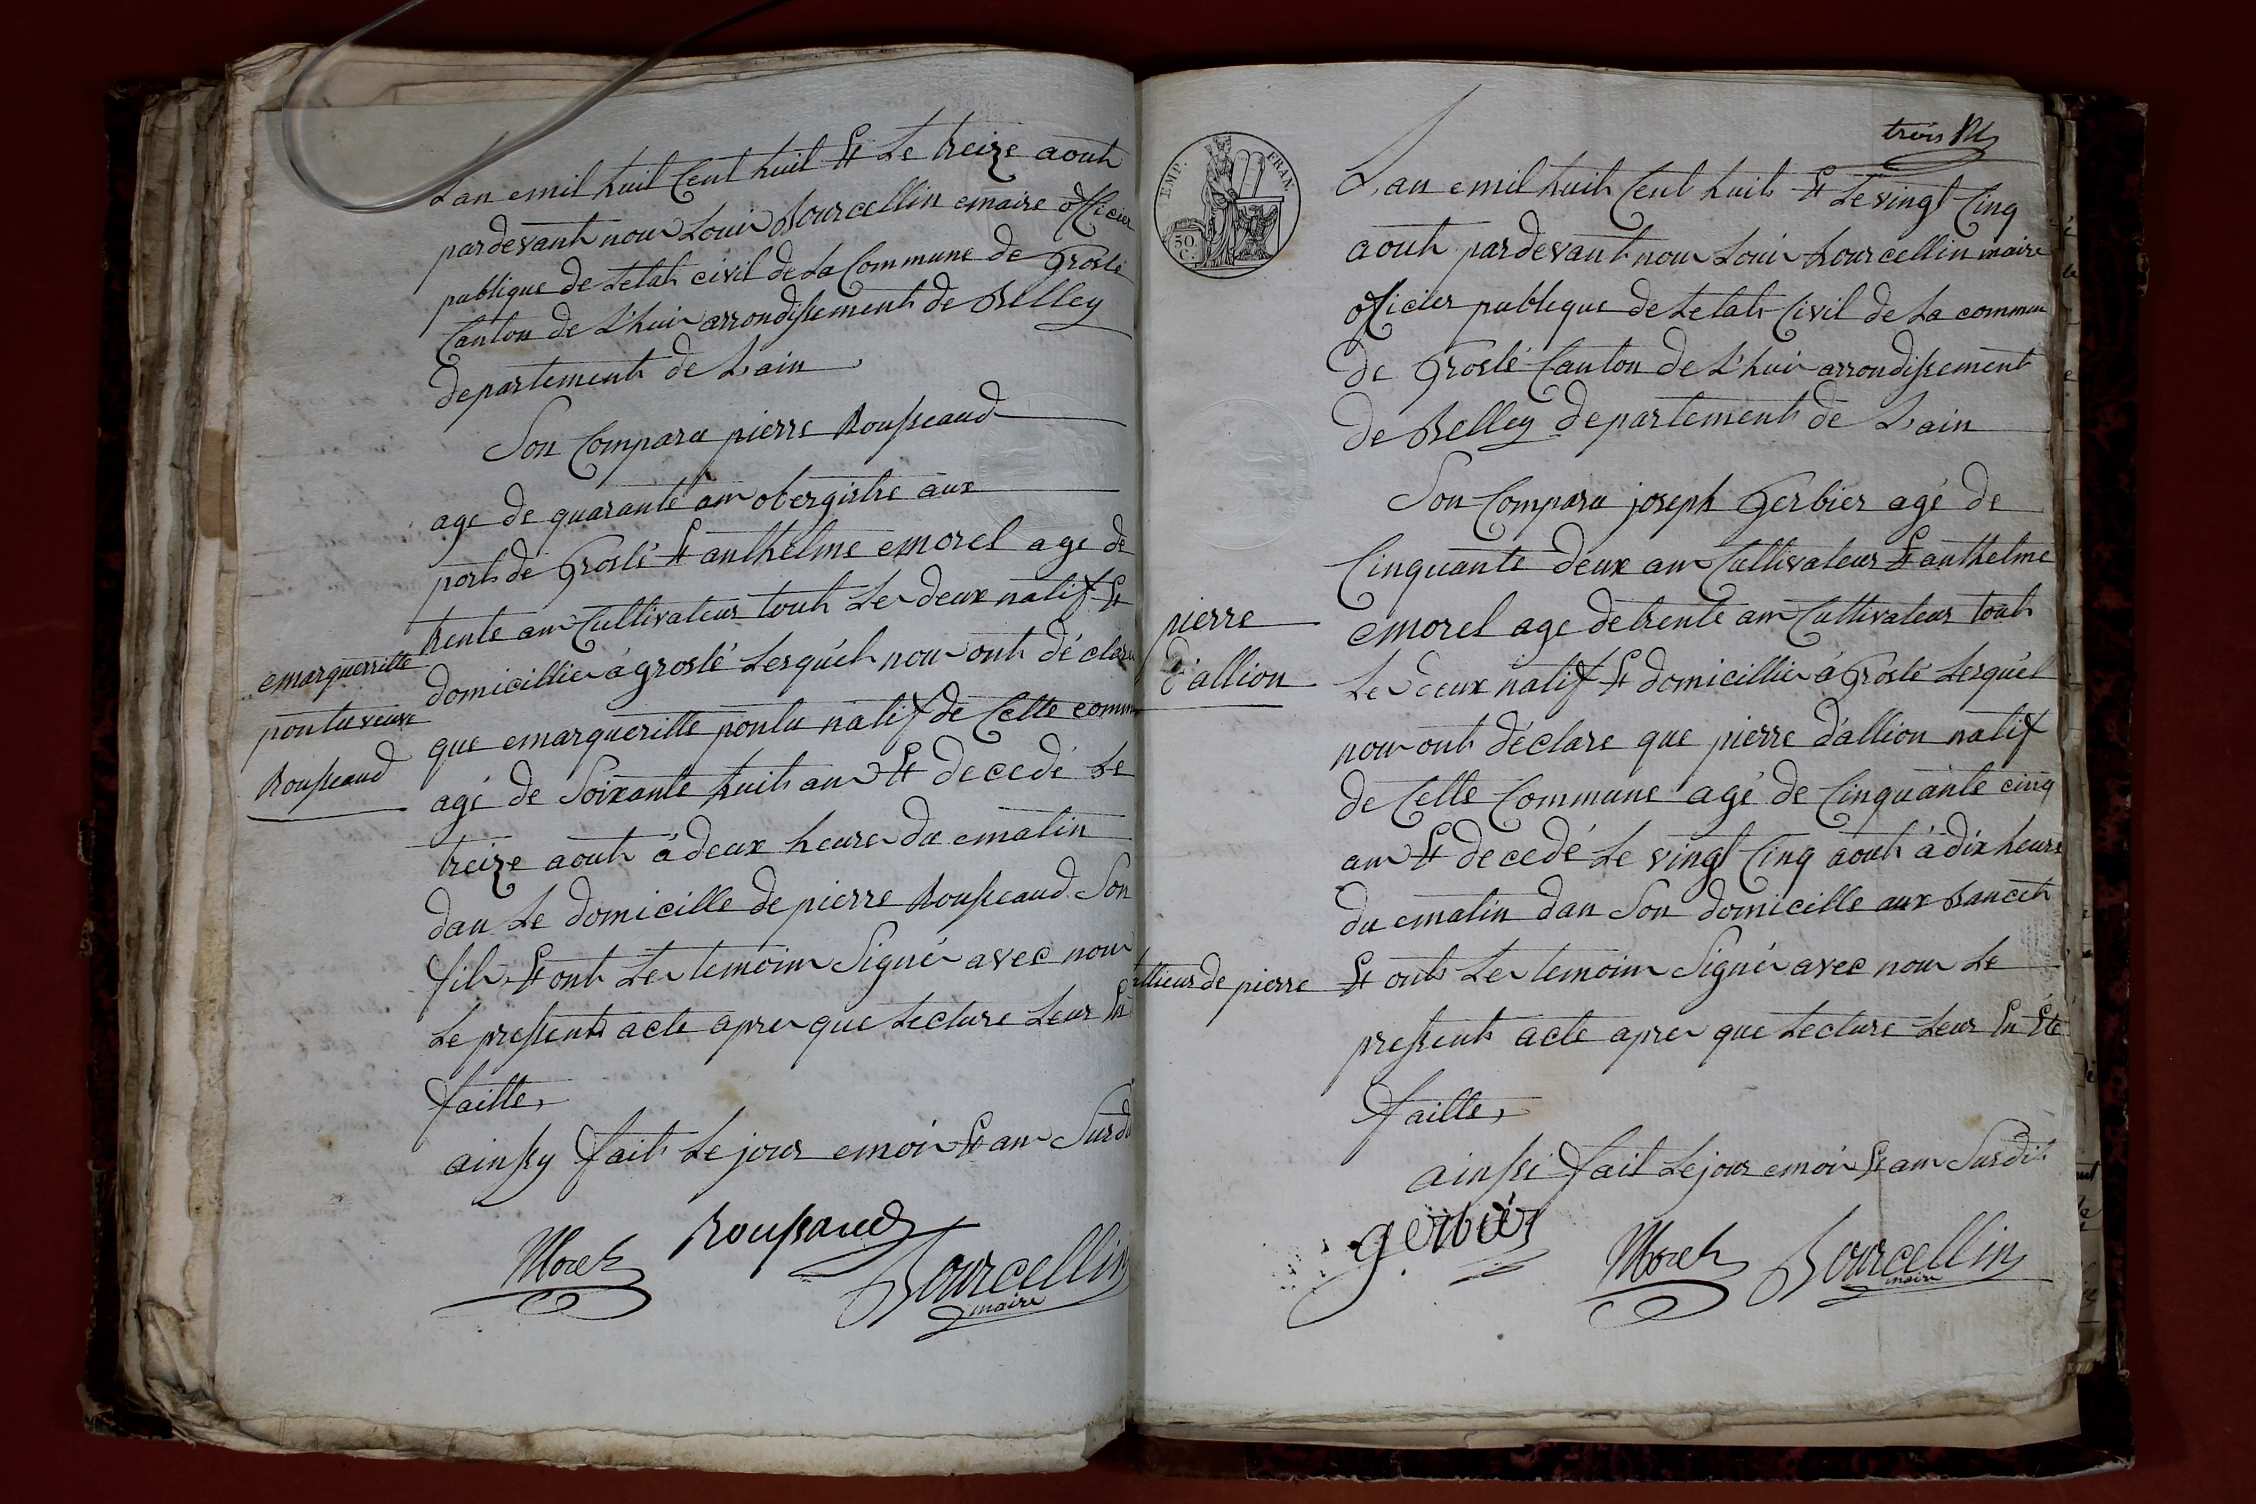 L'an emil huit Cent huit Et Le treize aout
pardevant nous Louis Bourcellin emaire officier
publique de Letat civil de La Commune de Groslé
Canton de L'huis arrondissement de Belley
departement de L'ain
Son Comparu pierre Rousseaud
age de quarante ans obergistre aux
port de Groslé Et anthelme emorel age de
trente ans Cultivateur tout Les deux natif Et
domicillies à groslé Lesquéls nous ont déclaré
que emargueritte pontu natif de Cette comm
agé de Soixante huit ans Et decedé Le
treize aout à deux heures du ematin
dans Le domicille de pierre Rousseaud Son
fils Et ont Les temoins Signés avec nous
Le pressent acte apres que Lecture Leur En
faitte,
ainssy fait Le jour emois Et an Surdi
emarguerritte
pontu veuve
Rousseaud
Morel Roussaud
Bourcellin
maire
trois
EMP. FRAN.
50 C.
L'an emil huit Cent huit Et Le vingt Cinq
aout pardevant nous Louis Bourcellin maire
officier publique de Letat Civil de La commune
de Groslé Canton de L'huis arrondissement
de Belley departement de L'ain
Son Comparu joseph Gerbier agé de
Cinquante deux ans Cultivateur Et anthelme
emorel age de trente ans Cultivateur tout
Les deux natif Et domicillies à Groslé Lesquél
nous ont déclare que pierre d'allion natif
de Cette Commune agé de Cinquante cinq
ans Et decedé Le vingt Cinq aout à dix heurs
du ematin dans Son domicille aux
Et ont Les temoins Signés avec nous Le
pressent acte apres que Lecture Leur En Eté
faitte,
ainssi fait Le jour emois Et an Surdit
pierre
d'allion
de pierre
gerbier Morel Bourcellin
maire